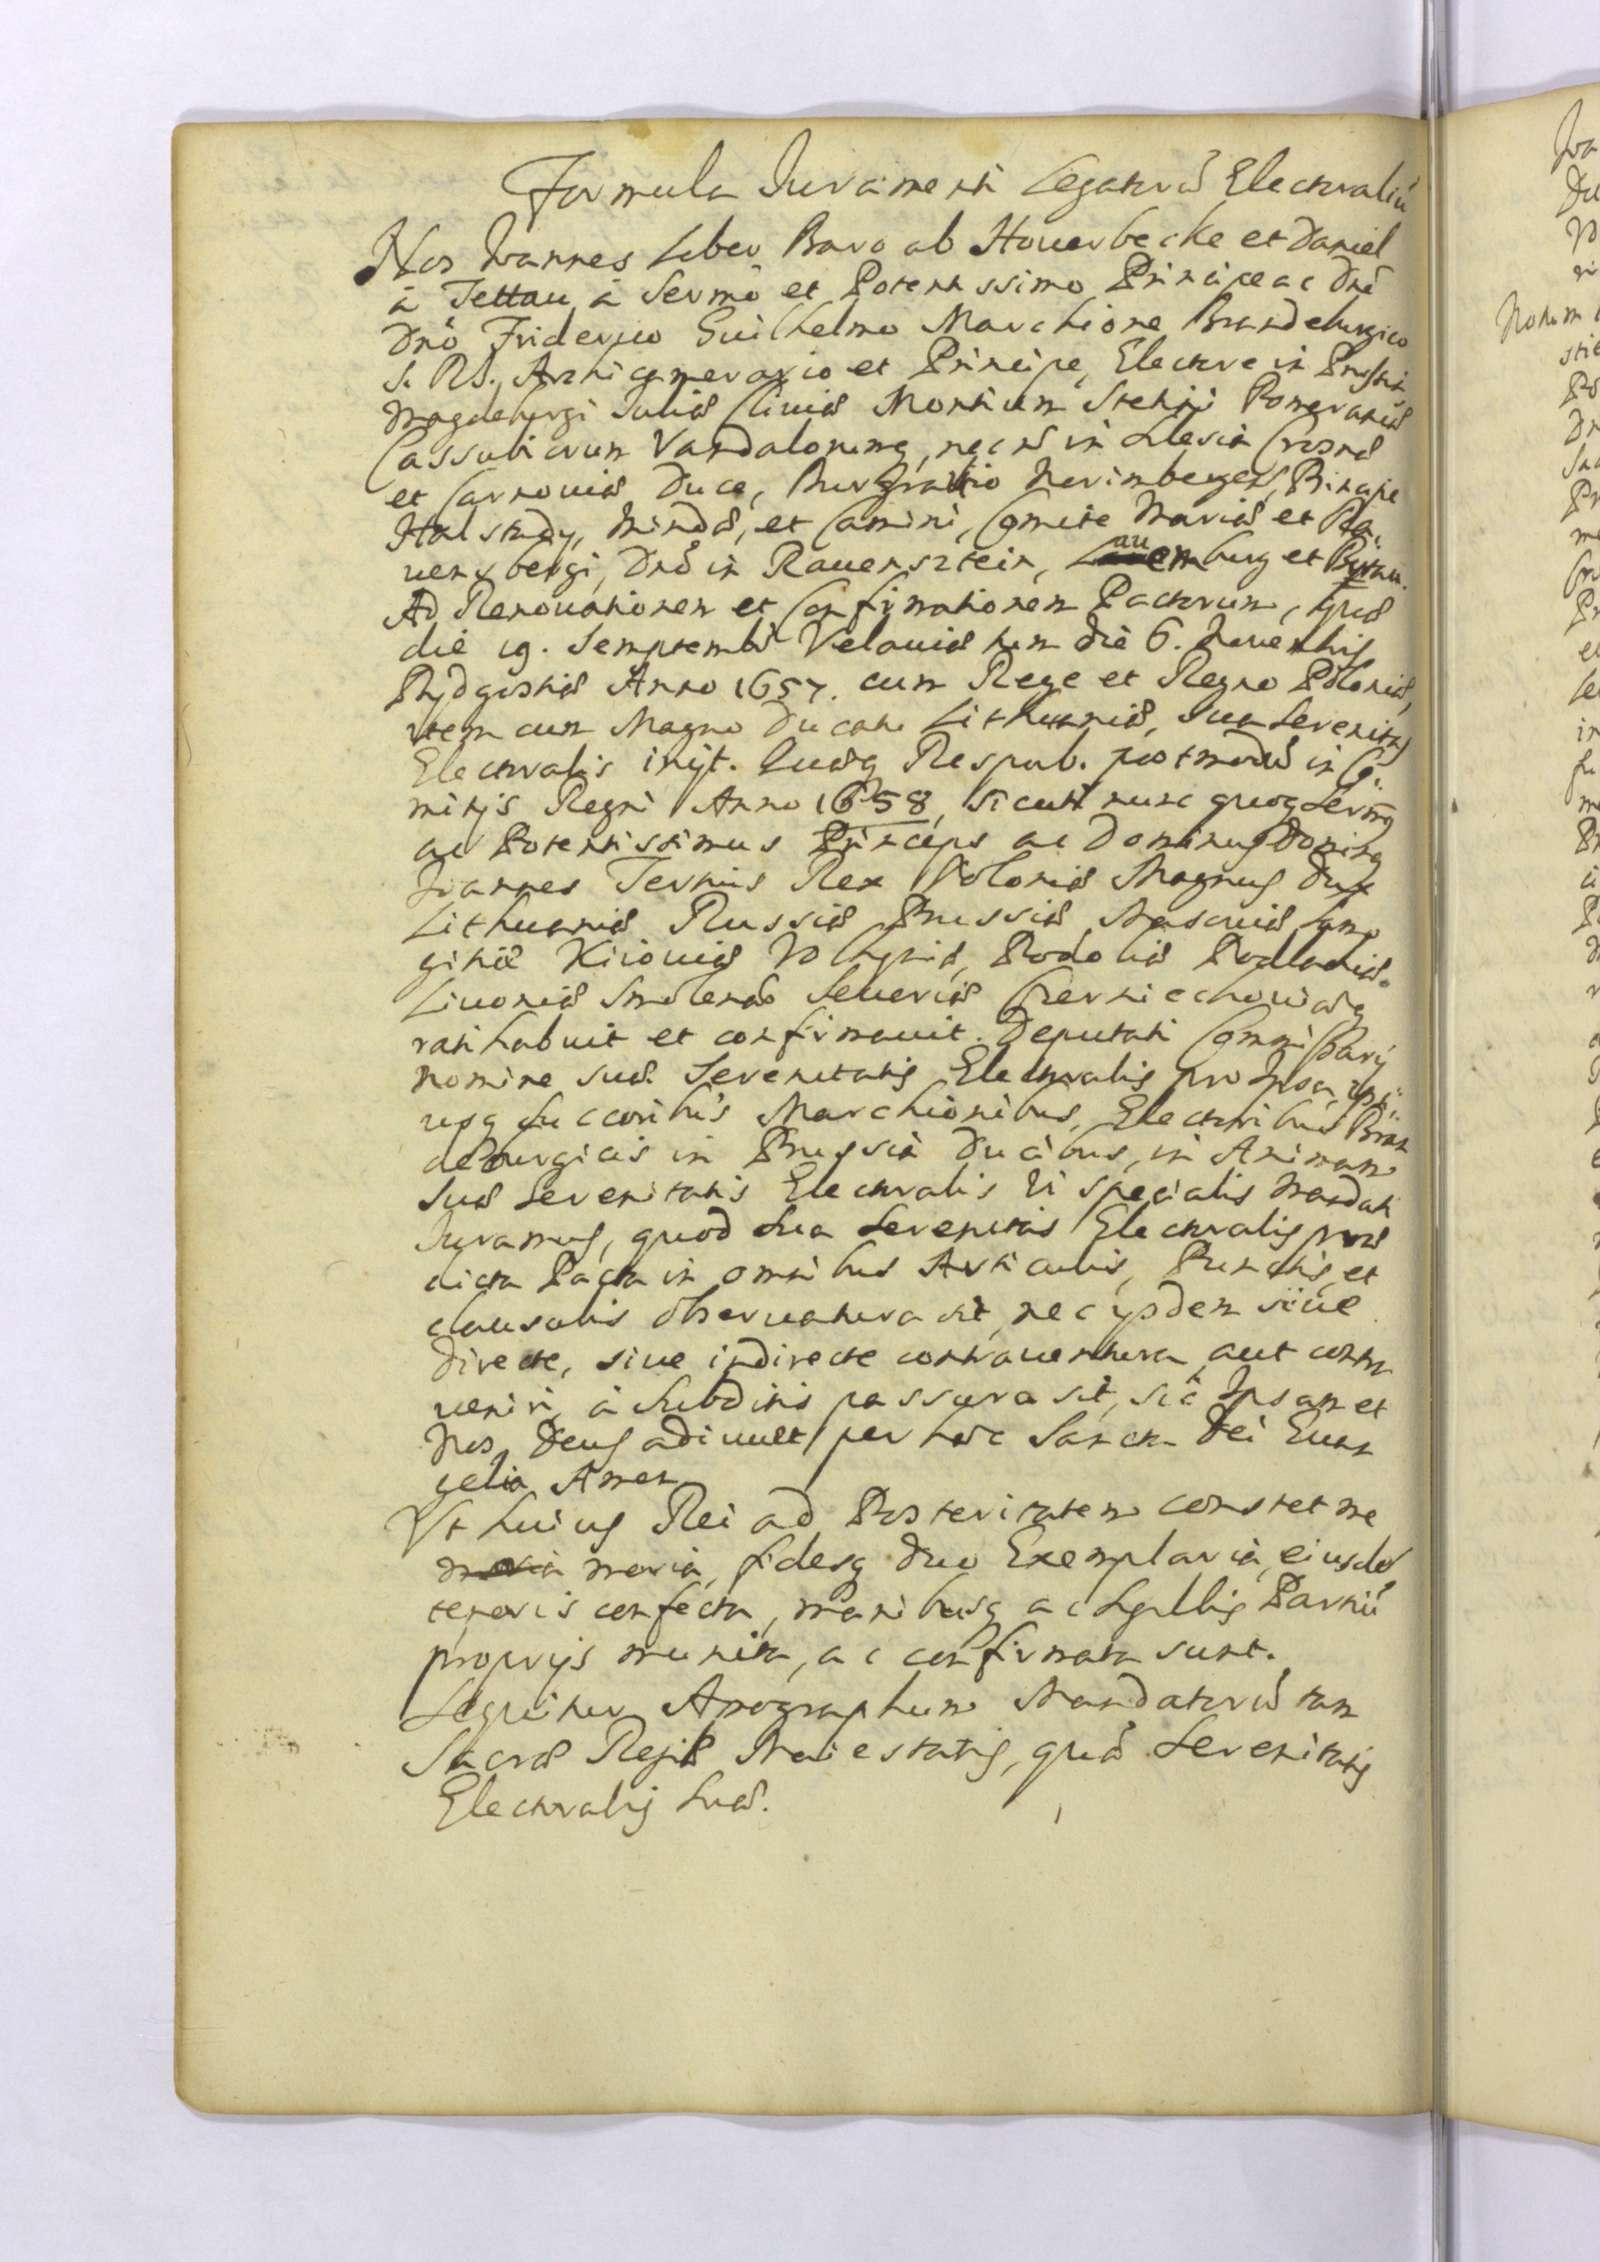 Formula Juramenti Legatorū Electoraliū
Nos Joannes Liber Baro ab Houerbecke et Daniel
à Tettau, à Sermō et Potentissimo Principe ac Dnō
Dnō Friderico Guilhelmo Marchione Brandeburgico
S. R. I. Archicamerario et Principe, Electore in Prussia
Magdeburgi Juliæ Cliuiæ Montium Stetini Pomeraniæ
Cassubiorum Vandalorumq, necnō in Silesia Crosnæ
et Carnouiæ Duce, Burgrabio Norimbergens, Principe
Halstady, Mindæ, et Camini, Comite Marciæ et Ra,
uensbergi, Dnō in Rauensztein, Lauenburg et Bytou.
Ad Renouationem et Confirmationem Pactorum, quæ
die 19. Septembr Velauiæ tum die 6. Nouembris
Bydgostiæ Anno 1657. cum Rege et Regno Poloniæ,
item cum Magno Ducatu Lithuaniæ, Sua Serenitas
Electoralis inijt. Quæq Respub. postmodū in Co:
mitijs Regni Anno 1658, sicuti nunc quoq Sermq
ac Potentissimus Princeps ac Dominus Dominq
Joannes Tertius Rex Poloniæ Magnus Dux
Lithuaniæ Russiæ Prussiæ Masouiæ Samo
gitiæ Kiiouiæ Volhyniæ, Podoliæ Podlachiæ.
Liuoniæ Smolensc Seueriæ Czerniechouiæq
ratihabuit et confirmauit. Deputati Commissarij
nomine suæ Serenitatis Electoralis pro Ipsa, ipsi:
usq Successoribus Marchionibus, Electoribus Bran
deburgicis in Prussia Ducibus, in Animam
Suæ Serenitatis Electoralis Vi specialis Mandati
Juramus, quod Sua Serenitas Electoralis præ
dicta Pacta in omnibus Articulis, Punctis, et
clausulis obseruatura sit, nec ijsdem siue
directe, siue indirecte contrauentura, aut contra
ueniri, à Subditis passura sit, sic Ipsam et
Nos Deus adiuuet per hæc Sancta Dei Euan
gelia Amen
Vt huius Rei ad Posteritatem constet me
moria moria, fidesq duo Exemplaria, eiusdē
tenoris confecta, manibusq ac Sigillis Partiū
proprijs munita, ac confirmata sunt.
Sequitur Apographum Mandatorū tam
Sacræ Regiæ Maiestatis, quā Serenitatis
Electoralis Suæ.
Norim